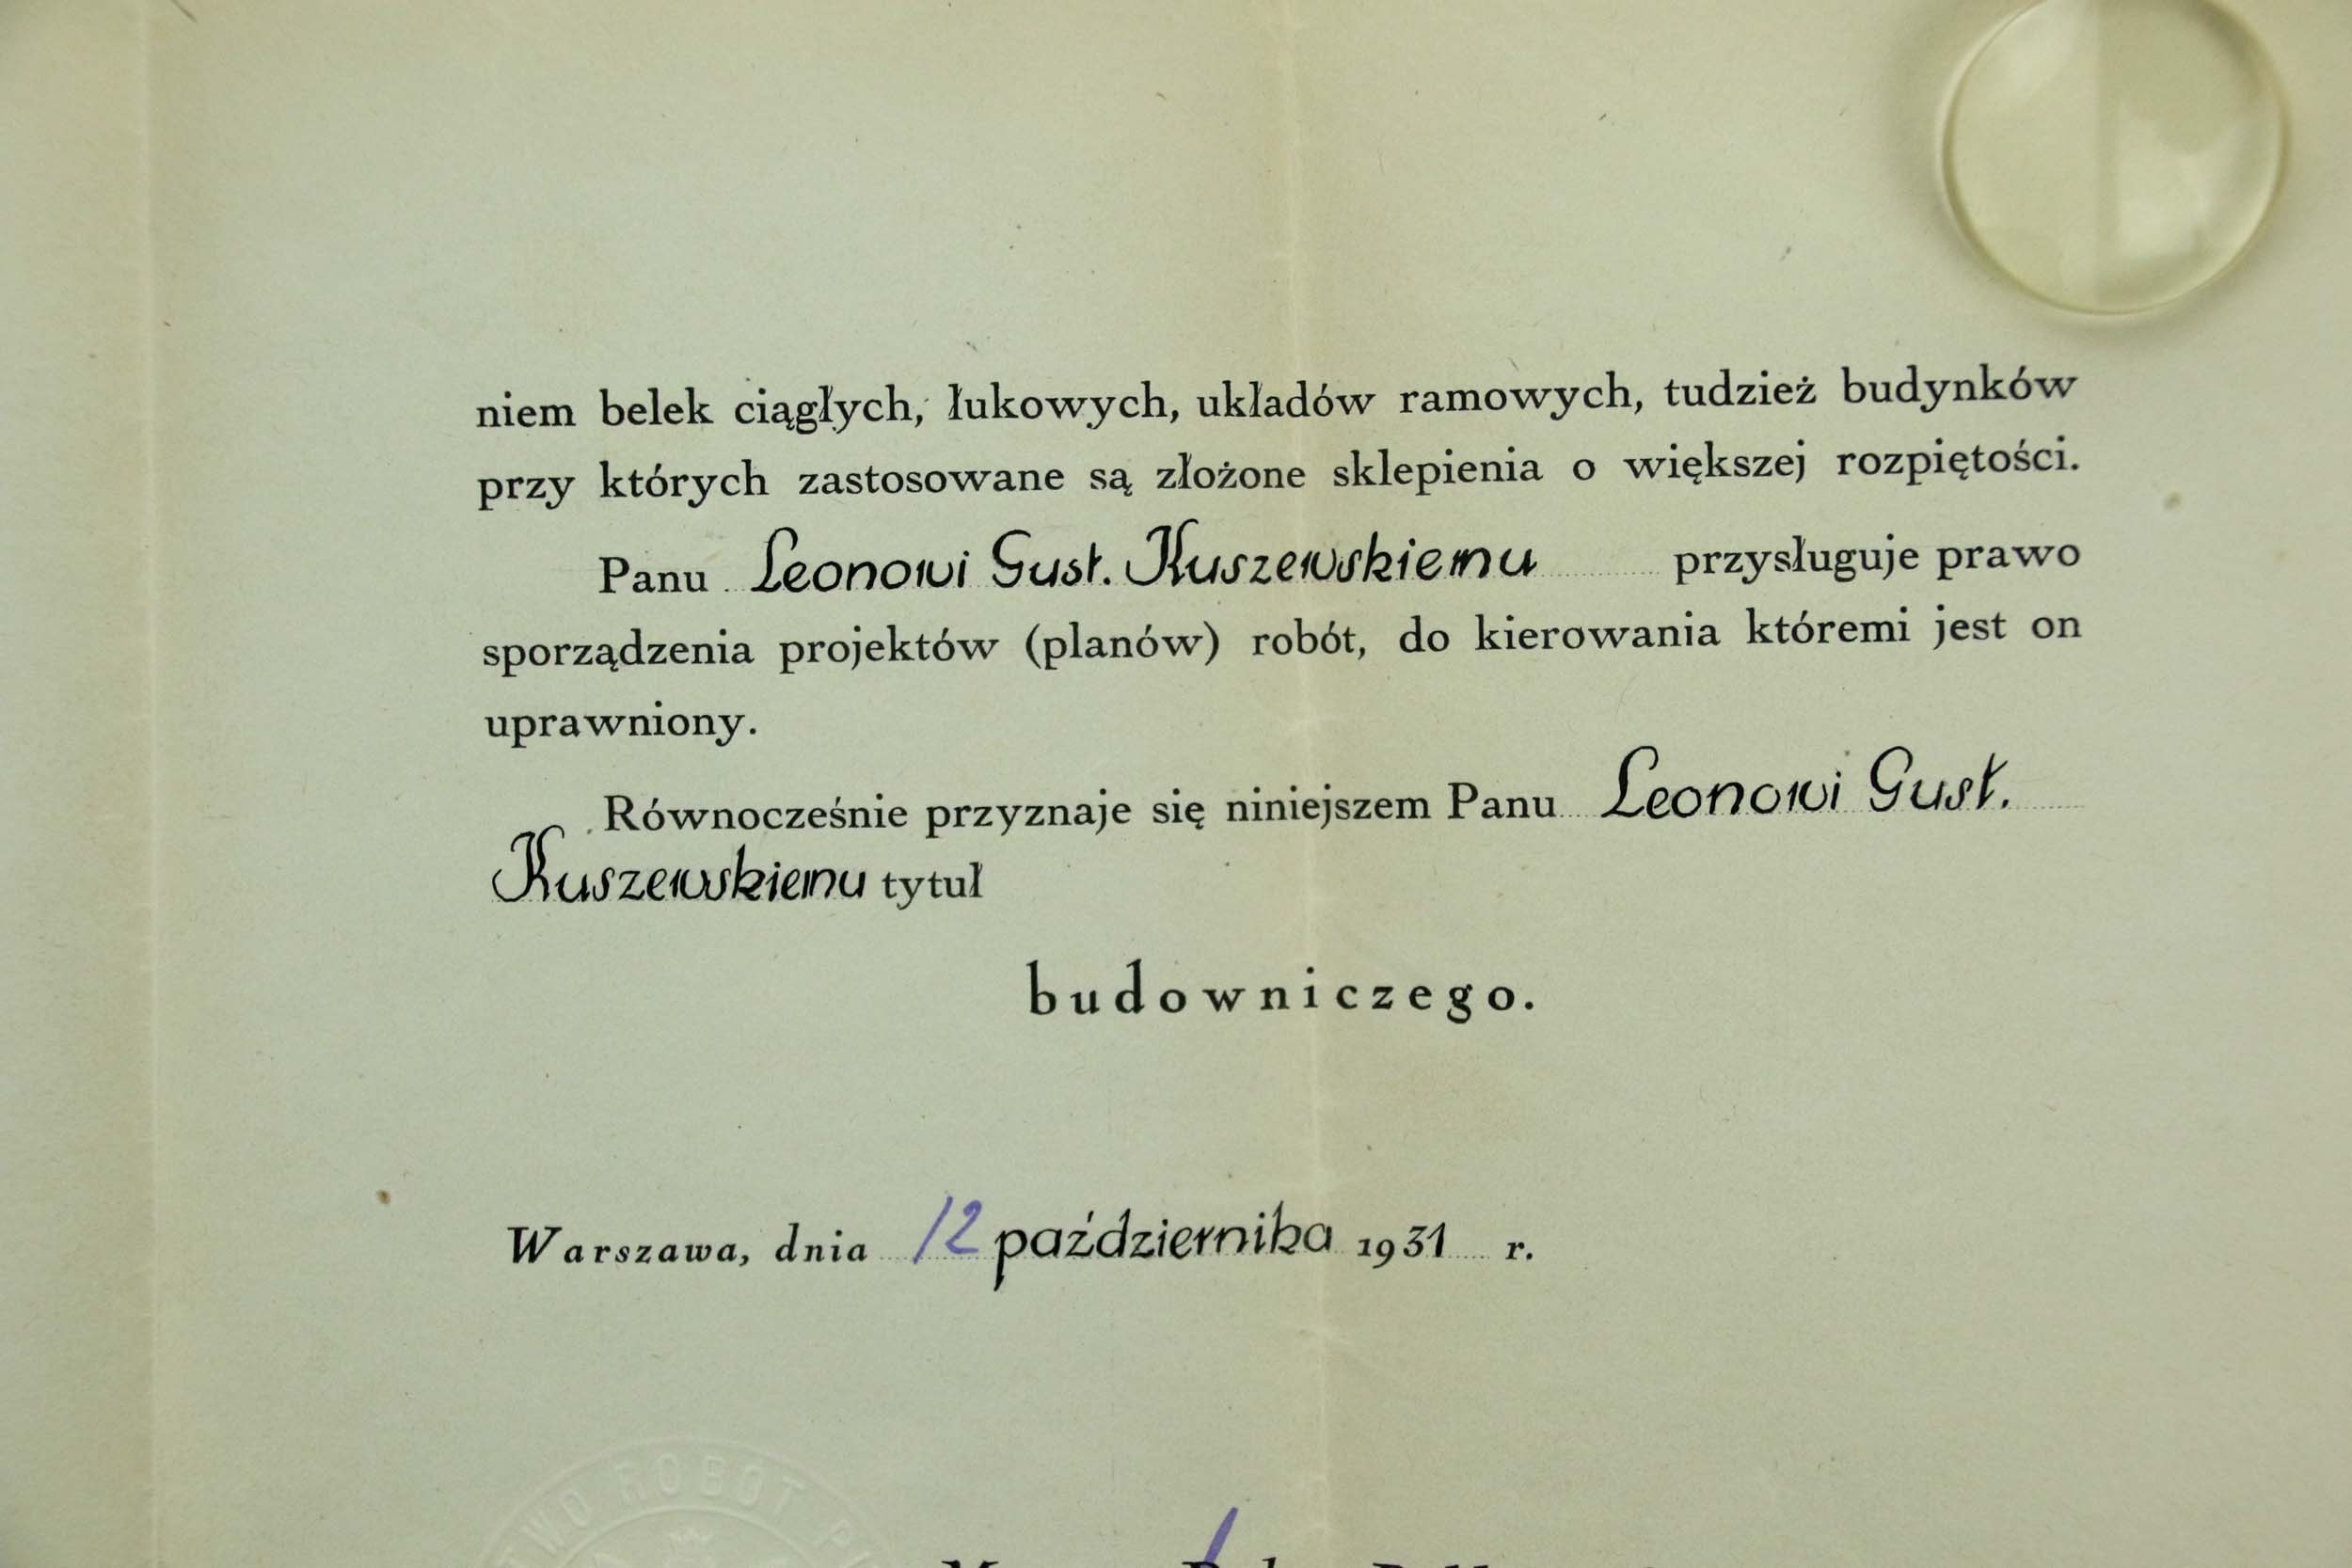 niem belek ciągłych, łukowych, układów ramowych, tudzież budynków
przy których zastosowane są złożone sklepienia o większej rozpiętości.
Panu Leonowi Gust. Kuszewskiemu przysługuje prawo
sporządzenia projektów (planów) robót, do kierowania któremi jest on
uprawniony.
Równocześnie przyznaje się niniejszem Panu Leonowi Gust.
Kuszewskiemu tytuł
budowniczego.
Warszawa, dnia 12 października 1931 r.
ROBOT